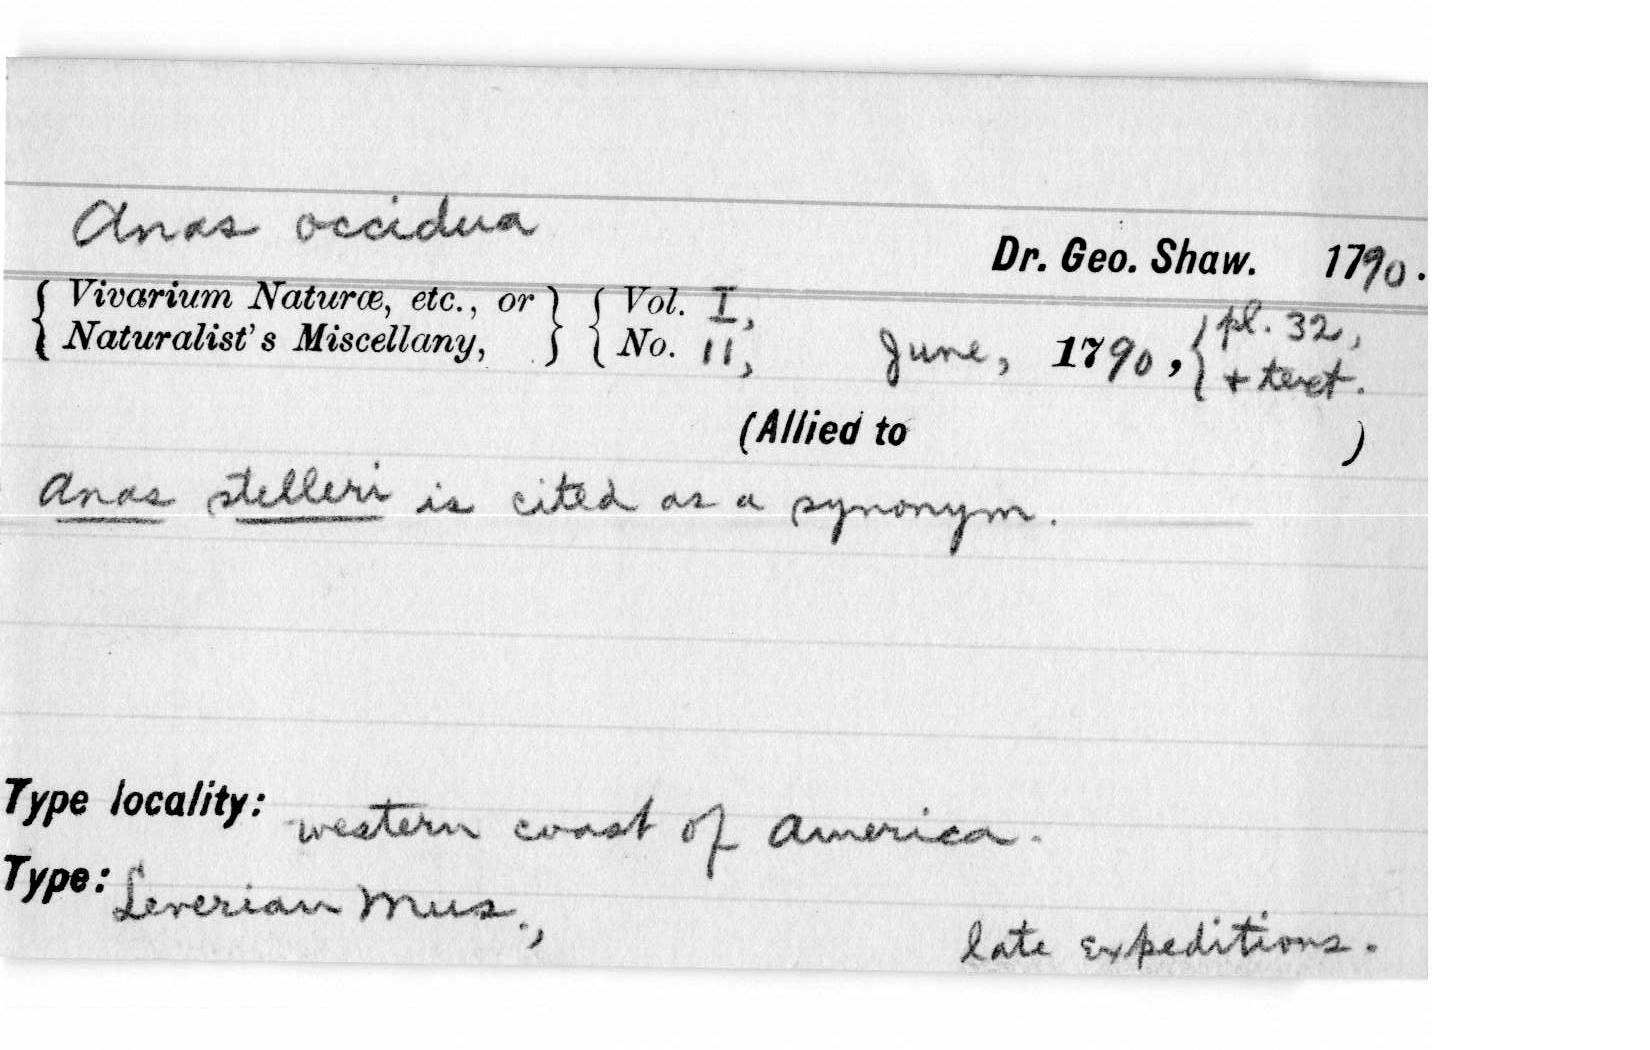 Anas occidua
Dr. Geo. Shaw. 1790.
{ Vivarium Naturæ, etc., or } { Vol. I,
{ Naturalist's Miscellany, } { No. 11, June, 1790, { pl. 32, + text.
(Allied to )
Anas stelleri is cited as a synonym.
Type locality: western coast of America.
Type: Leverian Mus., late expeditions.